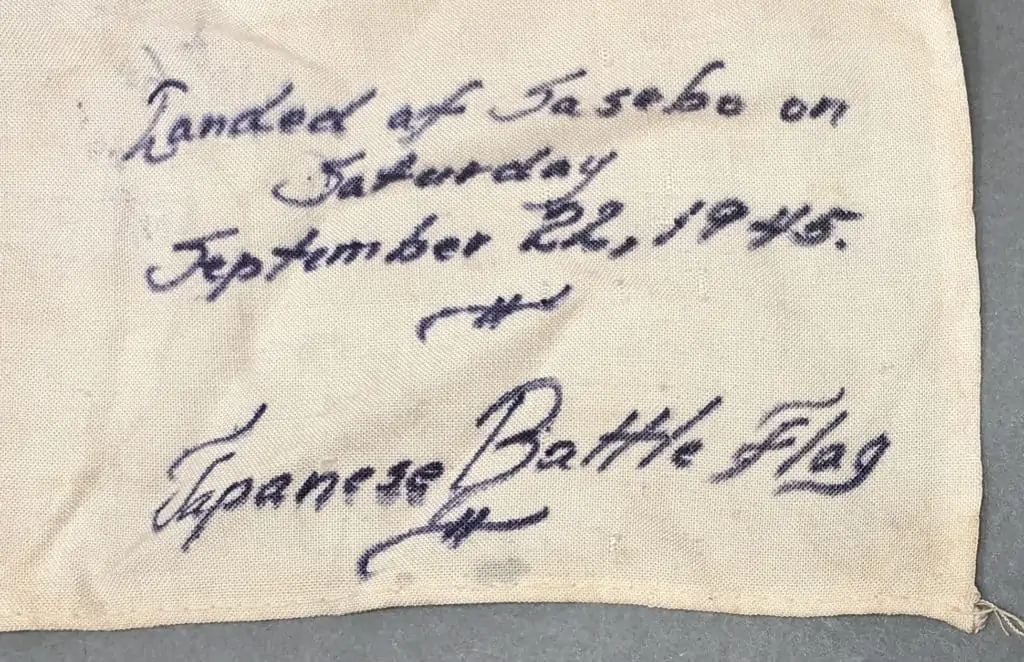 Landed at Sasebo on
Saturday
September 22, 1945.
Japanese Battle Flag